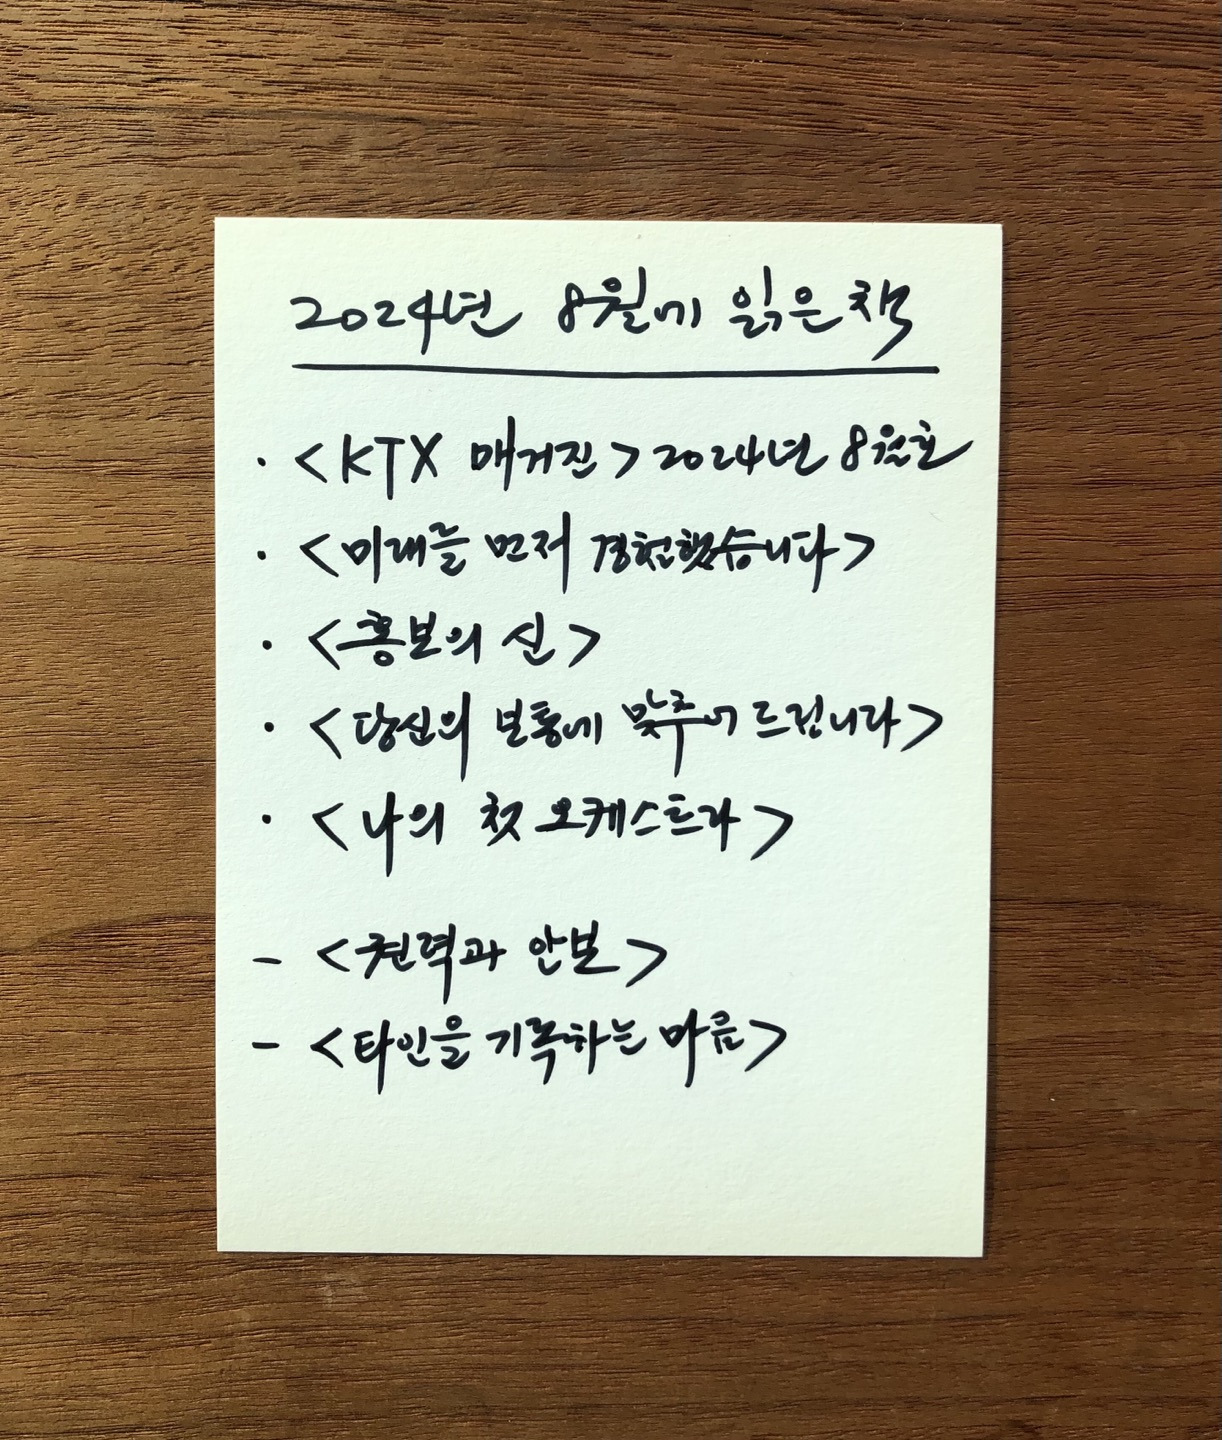 2024년 8월에 읽은 책
· <KTX 매거진> 2024년 8월호
· <미래를 먼저 경험했습니다>
· <홍보의 신>
· <당신의 보통에 맞추어 드립니다>
· <나의 첫 오케스트라>
- <권력과 안보>
- <타인을 기록하는 마음>